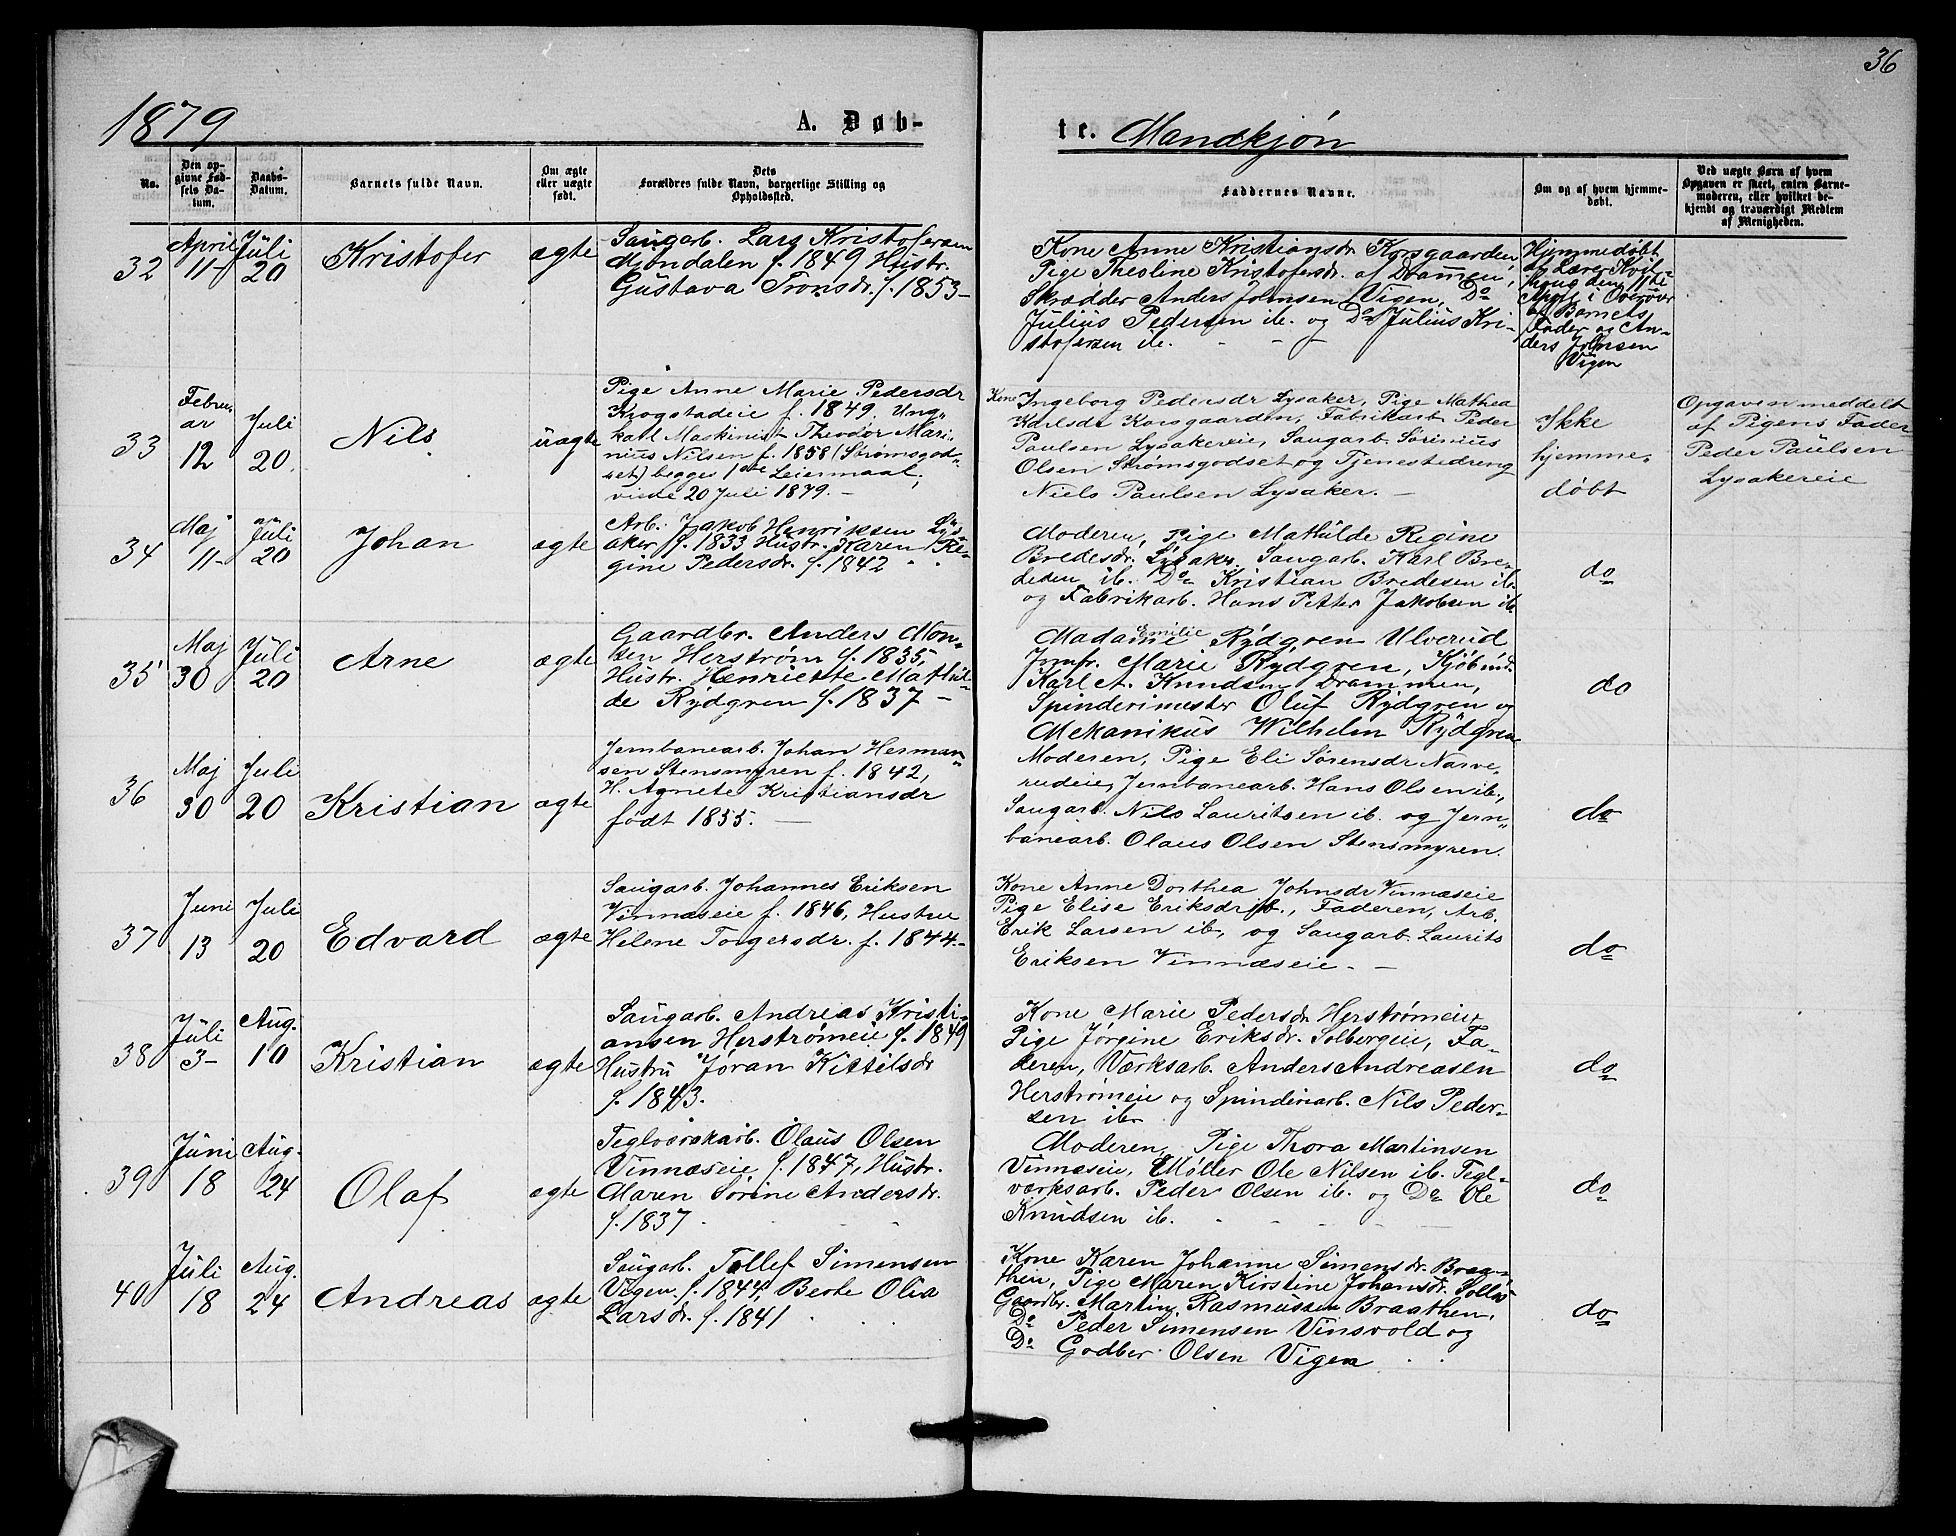 36
1879 A. Døb-
te. Mandkjøn
No.
Den op-
givne Fød-
sels Da-
tum.
Daabs-
Datum.
Barnets fulde Navn.
Om ægte
eller uægte
født.
Dets
Forældres fulde Navn, borgerlige Stilling og
Opholdssted.
Faddernes Navne.
Om og af hvem hjemme-
døbt.
Ved uægte Børn af hvem
Opgaven er skeet, enten Barne-
moderen, eller hvilket be-
kjendt og troværdigt Medlem
af Menigheden.
32
April
11-
Juli
20
Kristofer
ægte
Saugarb. Lars Kristofersen
Mondalen f. 1849 Hustr.
Gustava Tronsdr. f. 1853-
Kone Anne Kristiansdr Korsgaarden,
Pige Theoline Kristofersdr. af Drammen,
Skrædder Anders Johnsen Vigen, Do
Julius Pedersen ib. og Do Julius Kri-
stofersen ib. - -
Hjemmedøbt
af Lærer Kvik-
haug den 11te
April i Overvær
af Barnets
Fader og An-
ders Johnsen
Vigen
33
Febru-
ar
12
Juli
20
Nils
uægte
Pige Anne Marie Pedersdr
Krogstadeie f. 1849. Ung-
karl Maskinist Theodor Mari-
nius Nilsen f. 1858 (Strømsgod-
set) begges 1ste Leiermaal,
viede 20 Juli 1879. -
Kone Ingeborg Pedersdr Lysaker, Pige Mathea
Karlsdr Korsgaarden, Fabrikarb. Peder
Paulsen Lysakereie, Saugarb. Sørinius
Olsen Strømsgodset og Tjenestedreng
Niels Paulsen Lysaker. -
Ikke
hjemme-
døbt
Opgaven meddelt
af Pigens Fader
Peder Paulsen
Lysakereie
34
Maj
11-
Juli
20
Johan
ægte
Arb. Jakob Henriksen Lys-
aker f. 1833 Hustr. Karen Re-
gine Pedersdr. f. 1842 - -
Moderen, Pige Mathilde Regine
Bredesdr. Lysaker. Saugarb. Karl Bre-
desen ib. Do Kristian Bredesen ib.
og Fabrikarb. Hans Petter Jakobsen ib.
do
35
Maj
30
Juli
20
Arne
ægte
Gaardbr. Anders Mon-
sen Herstrøm f. 1835,
Hustr. Henriette Mathil-
de Rydgren f. 1837 -
Madame Emilie Rydgren Ulverud
Jomfr. Marie Rydgren, Kjøbmd.
Karl A. Knudsen Drammen,
Spinderimester Oluf Rydgren og
Mekanikus Wilhelm Rydgren
do
36
Maj
30
Juli
20
Kristian
ægte
Jernbanearb. Johan Herman-
sen Stensmyren f. 1842,
H. Agnete Kristiansdr
født 1855. -
Moderen, Pige Eli Sørensdr Narve-
rudeie, Jernbanearb. Hans Olsen ib.,
Saugarb. Nils Lauritsen ib. og Jern-
banearb. Olaus Olsen Stensmyren.
do
37
Juni
13
Juli
20
Edvard
ægte
Saugarb. Johannes Eriksen
Vinnæseie f. 1846, Hustru
Helene Torgersdr. f. 1844-
Kone Anne Dorthea Johnsdr Vinnæseie
Pige Elise Eriksdr ib., Faderen, Arb.
Erik Larsen ib, og Saugarb. Laurits
Eriksen Vinnæseie. -
do
38
Juli
3-
Aug.
10
Kristian
ægte
Saugarb. Andreas Kristi-
ansen Herstrømeie f. 1849
Hustru Jøran Kittilsdr
f. 1843.
Kone Marie Pedersdr Herstrømeie,
Pige Jørgine Eriksdr. Solbergeie, Fa-
deren, Værksarb. Anders Andreasen
Herstrømeie og Spinderiarb. Nils Peder-
sen ib.
do
39
Juni
18
Aug.
24
Olaf
ægte
Teglværksarb. Olaus Olsen
Vinnæseie f. 1847, Hustr.
Maren Sørine Andersdr.
f. 1837 - - -
Moderen, Pige Thora Martinsen
Vinnæseie, Møller Ole Nilsen ib. Tegl-
værksarb. Peder Olsen ib. og Do Ole
Knudsen ib. - - - -
do
40
Juli
18
Aug.
24
Andreas
ægte
Saugarb. Tollef Simensen
Vigen f. 1844, Berte Olia
Larsdr. f. 1841 . . .
Kone Karen Johanne Simensdr. Braa-
then, Pige Maren Kirstine Johansdr.
Gaardbr. Martin Rasmussen Braathen,
Do Peder Simensen Vinsvold og
Do Godber Olsen Vigen . .
do